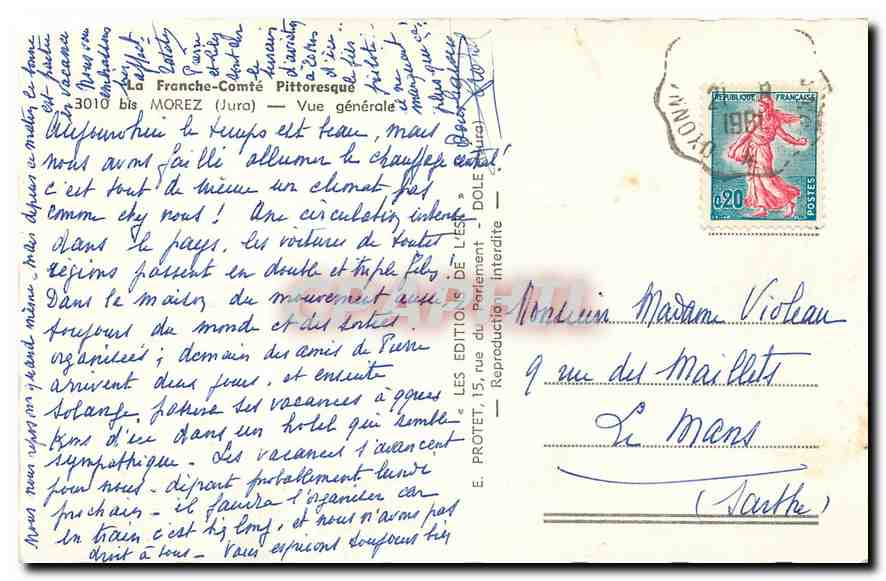 La Franche-Comté Pittoresque
3010 bis MOREZ (Jura) — Vue générale
Aujourd'hui le temps est beau, mais
nous avons failli allumer le chauffage central!
c'est tout de même un climat pas
comme chez nous! Une circulation intense
dans le pays, les voitures de toutes
régions passent en double et triple files!
Dans la maison du mouvement aussi,
toujours du monde et des sorties
organisées; demain des amis de Pierre
arrivent deux jours, et ensuite
Solange, passera ses vacances à qques
Kms d'ici dans un hotel qui semble
sympathique. Les vacances s'avancent
pour nous - départ probablement lundi
prochain - il faudra s'organiser car
en train c'est très long, et nous n'avons pas
droit à tous - Vous espérons toujours bien
Nous nous reposons quand même - mais depuis ce matin la bonne
est partie
en vacances
Nous
Pierre
et
sont
le terrain
d'aviation
à côté
d'ici
le
pilote
il ne
manquait
plus que ça!
« LES EDITIONS DE L'EST »
E. PROTET, 15, rue du Parlement - DOLE (Jura)
— Reproduction interdite —
21 8
1961
OYONN
REPUBLIQUE FRANÇAISE
0,20
POSTES
CPARAMA
Monsieur Madame Violeau
9 rue des Maillets
Le Mans
(Sarthe)